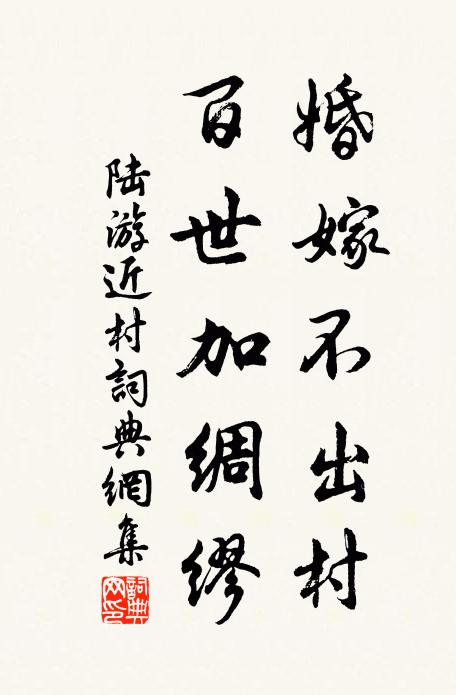 婚嫁不出村
百世加綢繆
陆游近村詞典網集
詞典网印